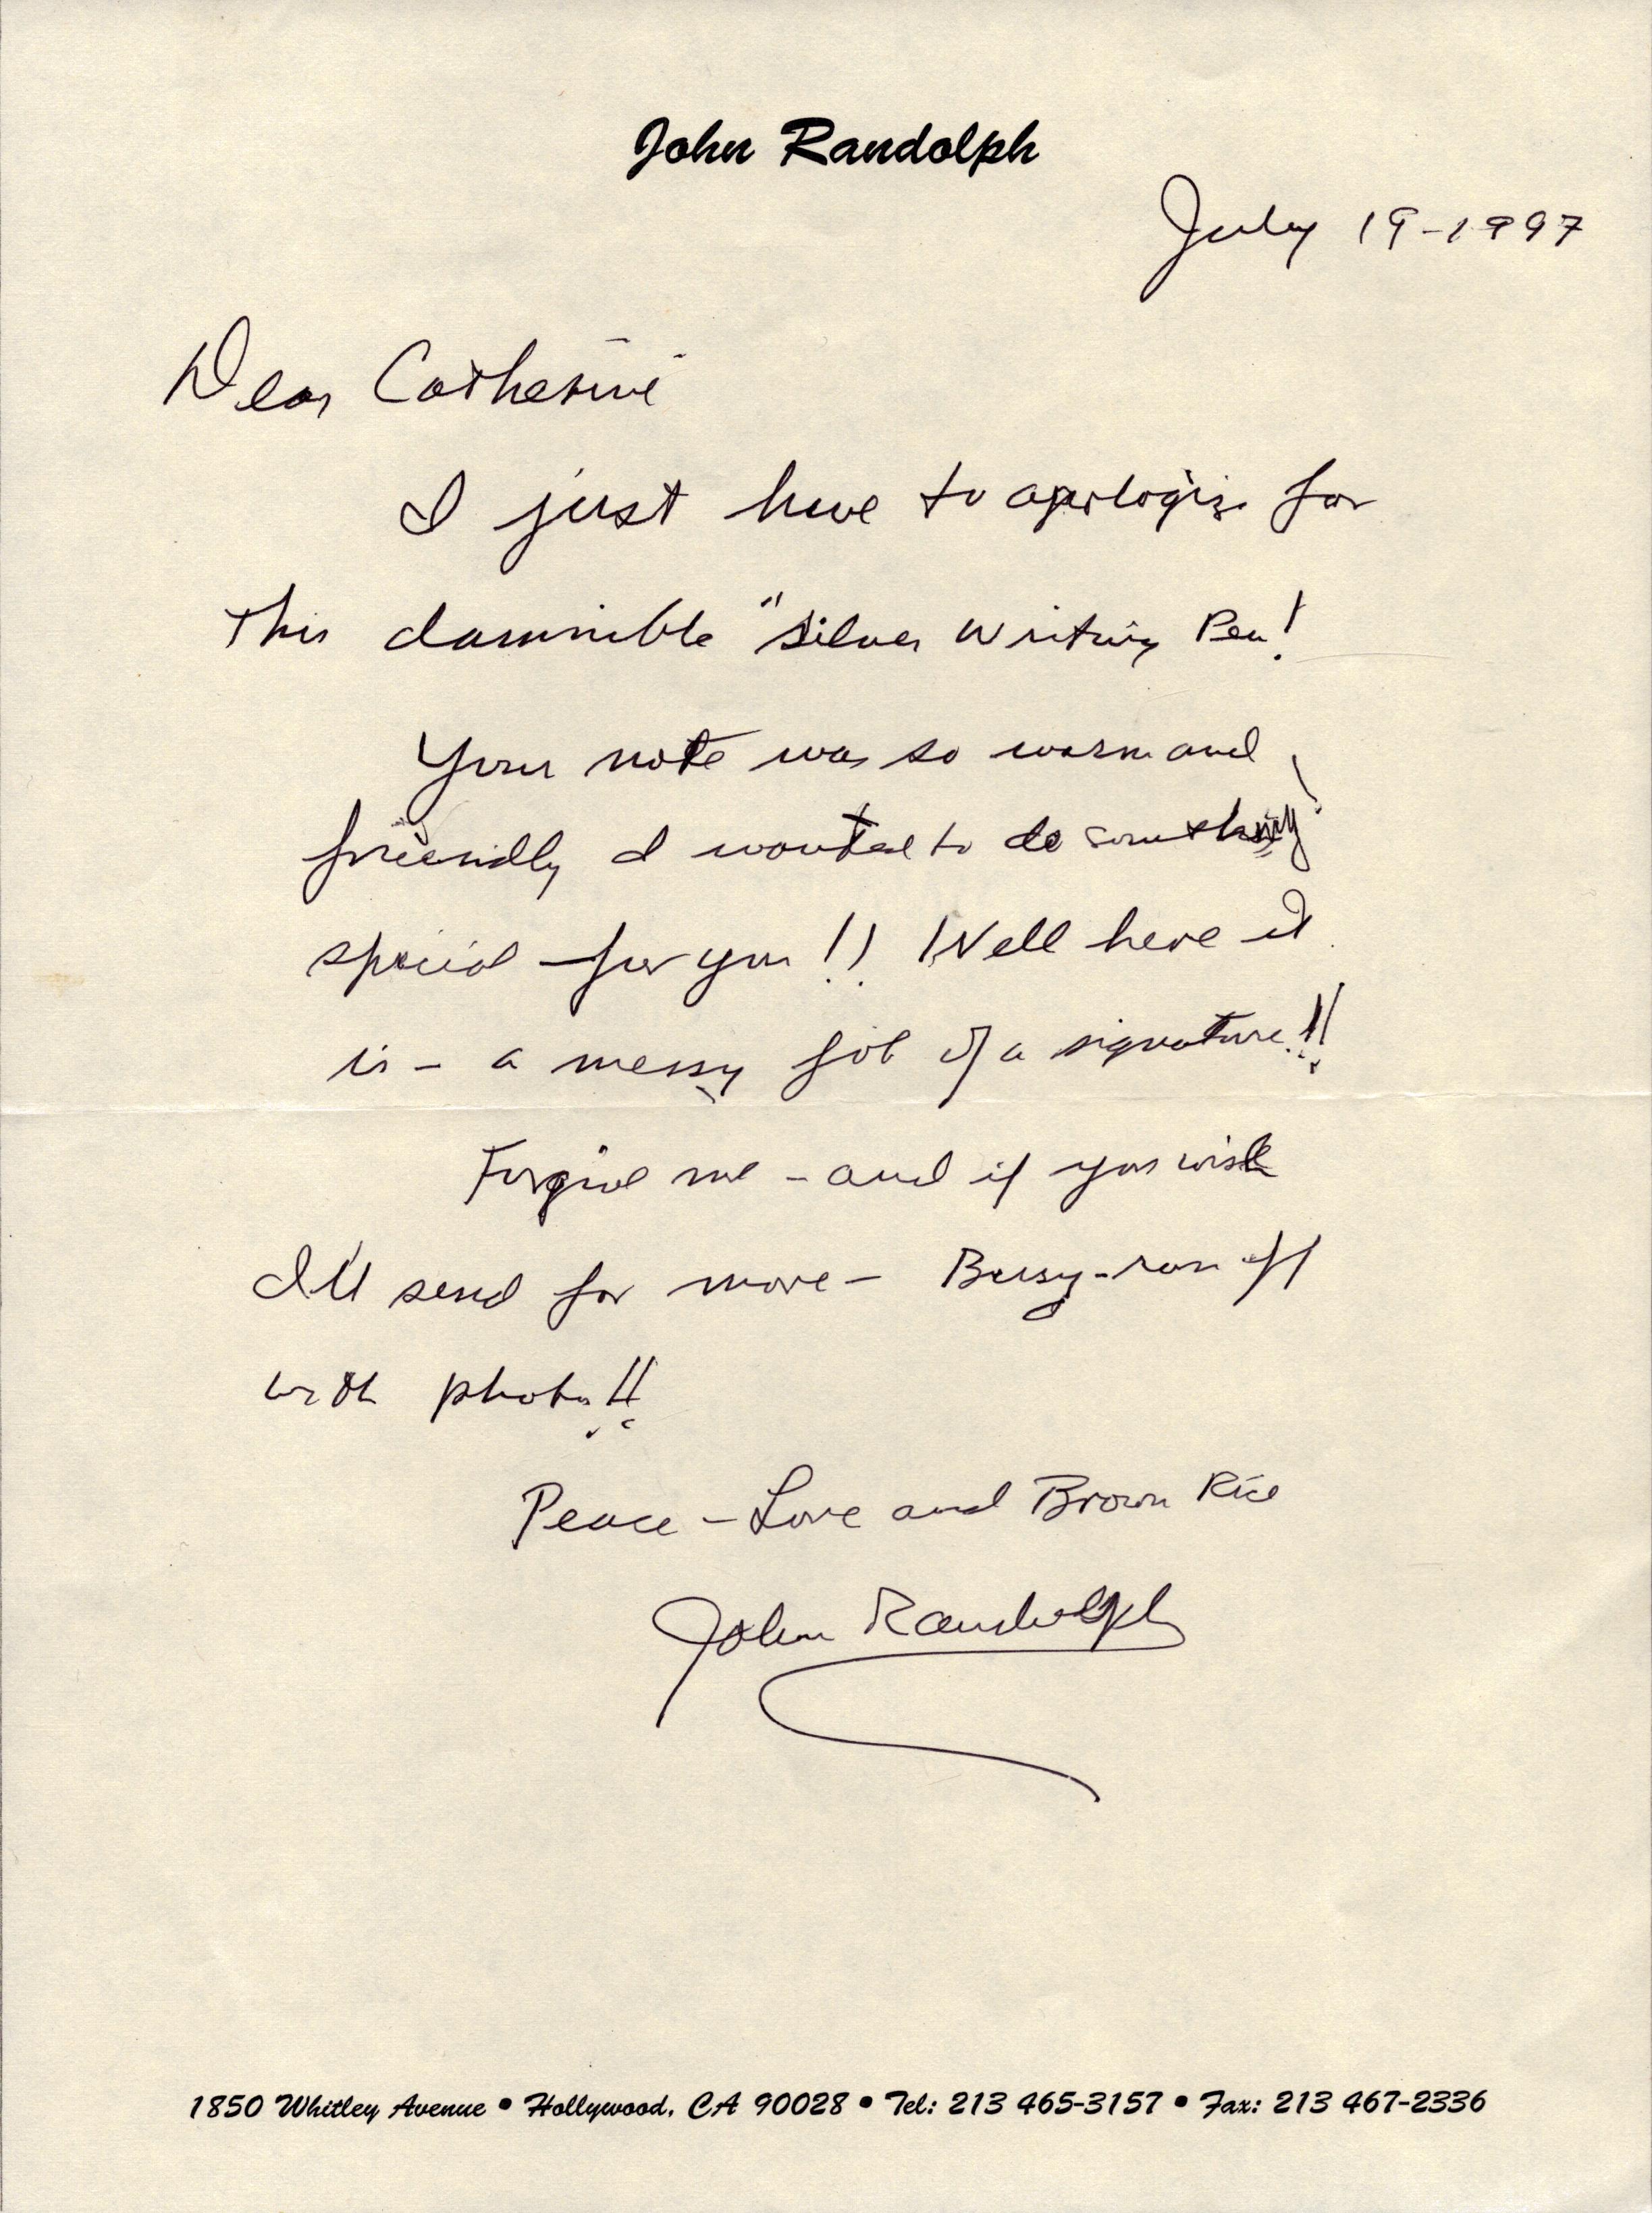 John Randolph
July 19-1997
Dear Catherine
I just have to apologize for
this damnible "Silver Writing Pen!
Your note was so warm and
friendly I wanted to do something!
special - for you!! Well here it
is - a messy job of a signature!!!
Forgive me - and if you wish
I'll send for more - Busy - ran off
with photos!!
Peace - Love and Brown Rice
John Randolph
1850 Whitley Avenue • Hollywood, CA 90028 • Tel: 213 465-3157 • Fax: 213 467-2336